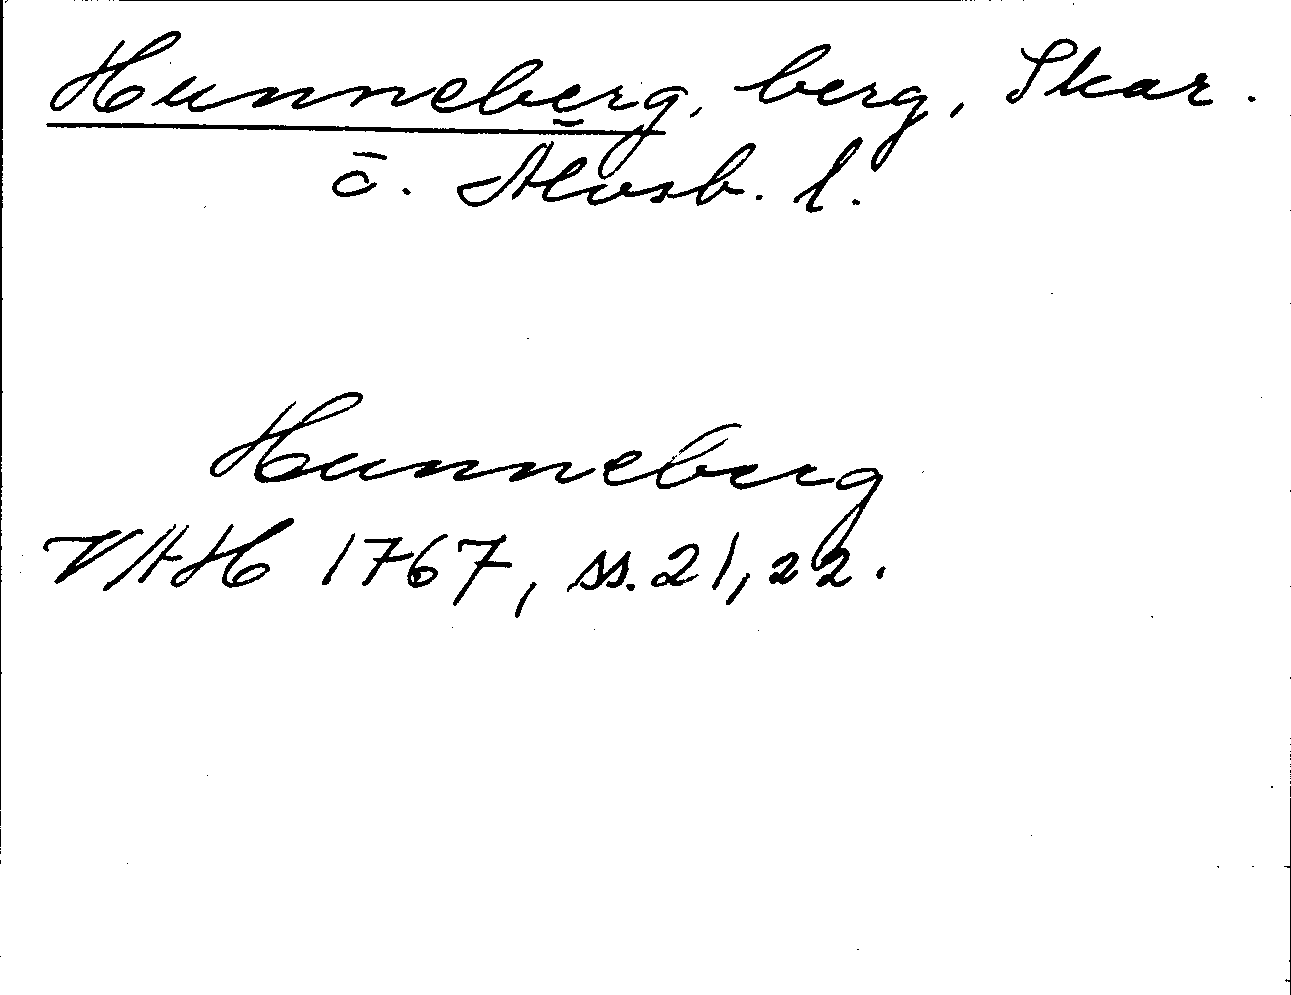 Hunneberg, berg, Skar.
o. Älvsb. l.
Hunneberg
VAH 1767, ss. 21, 22.